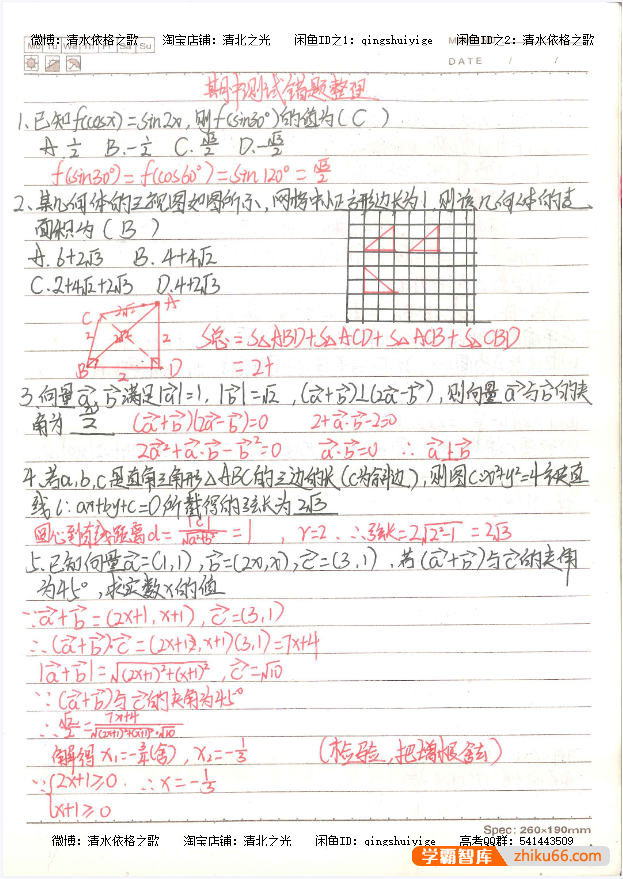 微博：清水依格之歌 淘宝店铺：清北之光 闲鱼ID之1：qingshuiyige 闲鱼ID之2：清水依格之歌
Mo Tu We Th Fr Sa Su
DATE / /
期中测试错题整理
1.已知f(cosx)=sin2x,则f(sin30°)的值为(C)
A.1/2 B.-1/2 C.√3/2 D.-√3/2
f(sin30°)=f(cos60°)=sin120°=√3/2
2、某几何体的三视图如图所示,网格中小正方形边长为1,则该几何体的表
面积为(B)
A.6+2√3 B.4+4√2
C.2+4√2+2√3 D.4+2√3
C 2√2 A
2 2√2 2
B 2 D
S总=S△ABD+S△ACD+S△ACB+S△CBD
=2+
3.向量a⃗,b⃗满足|a⃗|=1,|b⃗|=√2,(a⃗+b⃗)⊥(2a⃗-b⃗),则向量a⃗与b⃗的夹
角为π/2 (a⃗+b⃗)(2a⃗-b⃗)=0 2+a⃗·b⃗-2=0
2a⃗²+a⃗·b⃗-b⃗²=0 a⃗·b⃗=0 ∴a⃗⊥b⃗
4.若a,b,c是直角三角形△ABC的三边的长(c为斜边),则圆C:x²+y²=4被直
线l:ax+by+c=0所截得的弦长为2√3
圆心到直线距离d=|c|/√(a²+b²)=1,r=2.∴弦长=2√(2²-1)=2√3
5.已知向量a⃗=(1,1),b⃗=(2x,x),c⃗=(3,1).若(a⃗+b⃗)与c⃗的夹角
为45°,求实数x的值
∵a⃗+b⃗=(2x+1,x+1),c⃗=(3,1)
∴(a⃗+b⃗)·c⃗=(2x+1,x+1)(3,1)=7x+4
|a⃗+b⃗|=√((2x+1)²+(x+1)²),c⃗=√10
∵(a⃗+b⃗)与c⃗的夹角为45°
∴√2/2=(7x+4)/(√((2x+1)²+(x+1)²)·√10)
解得 (舍),x₂=-1/3 (检验,把增根舍去)
∵{2x+1≥0 ∴x=-1/3
x+1≥0
Spec: 260×190mm
微博：清水依格之歌 淘宝店铺：清北之光 闲鱼ID：qingshuiyige 高考QQ群：541443509
学霸智库 zhiku66.com